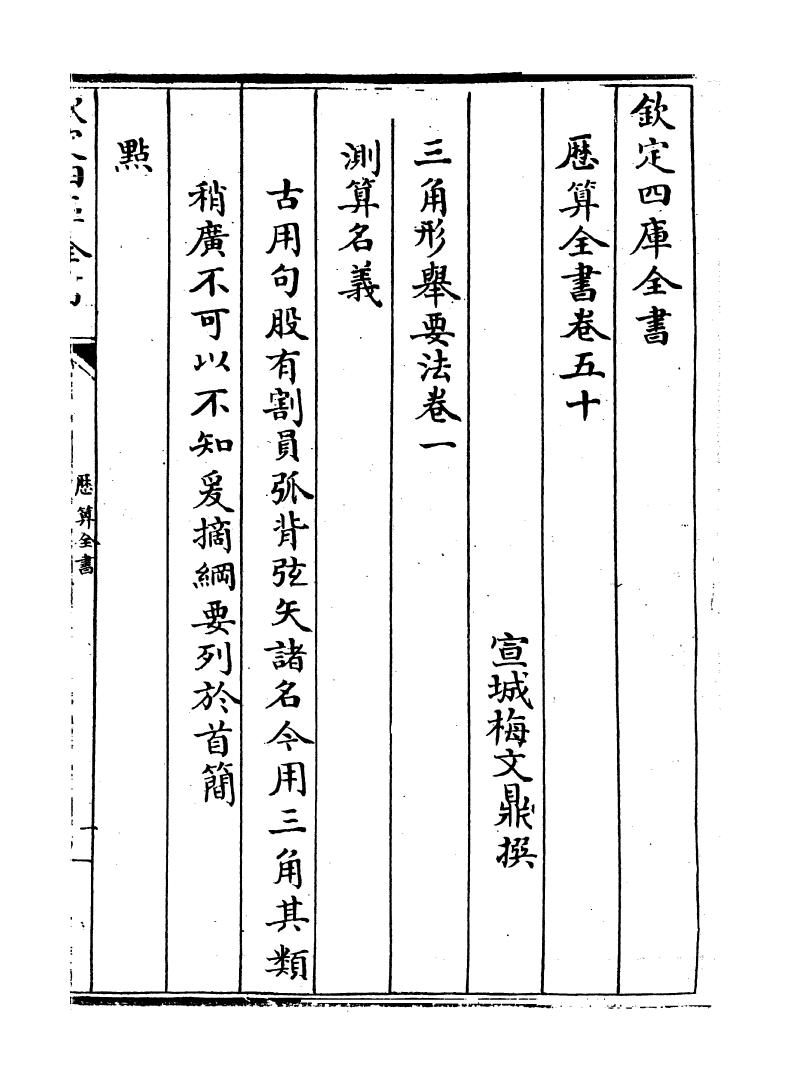 欽定四庫全書
歴算全書卷五十
宣城梅文鼎撰
三角形舉要法卷一
測算名義
古用句股有割員弧背弦矢諸名今用三角其類
稍廣不可以不知爰摘綱要列於首簡
點
歴算全書
一